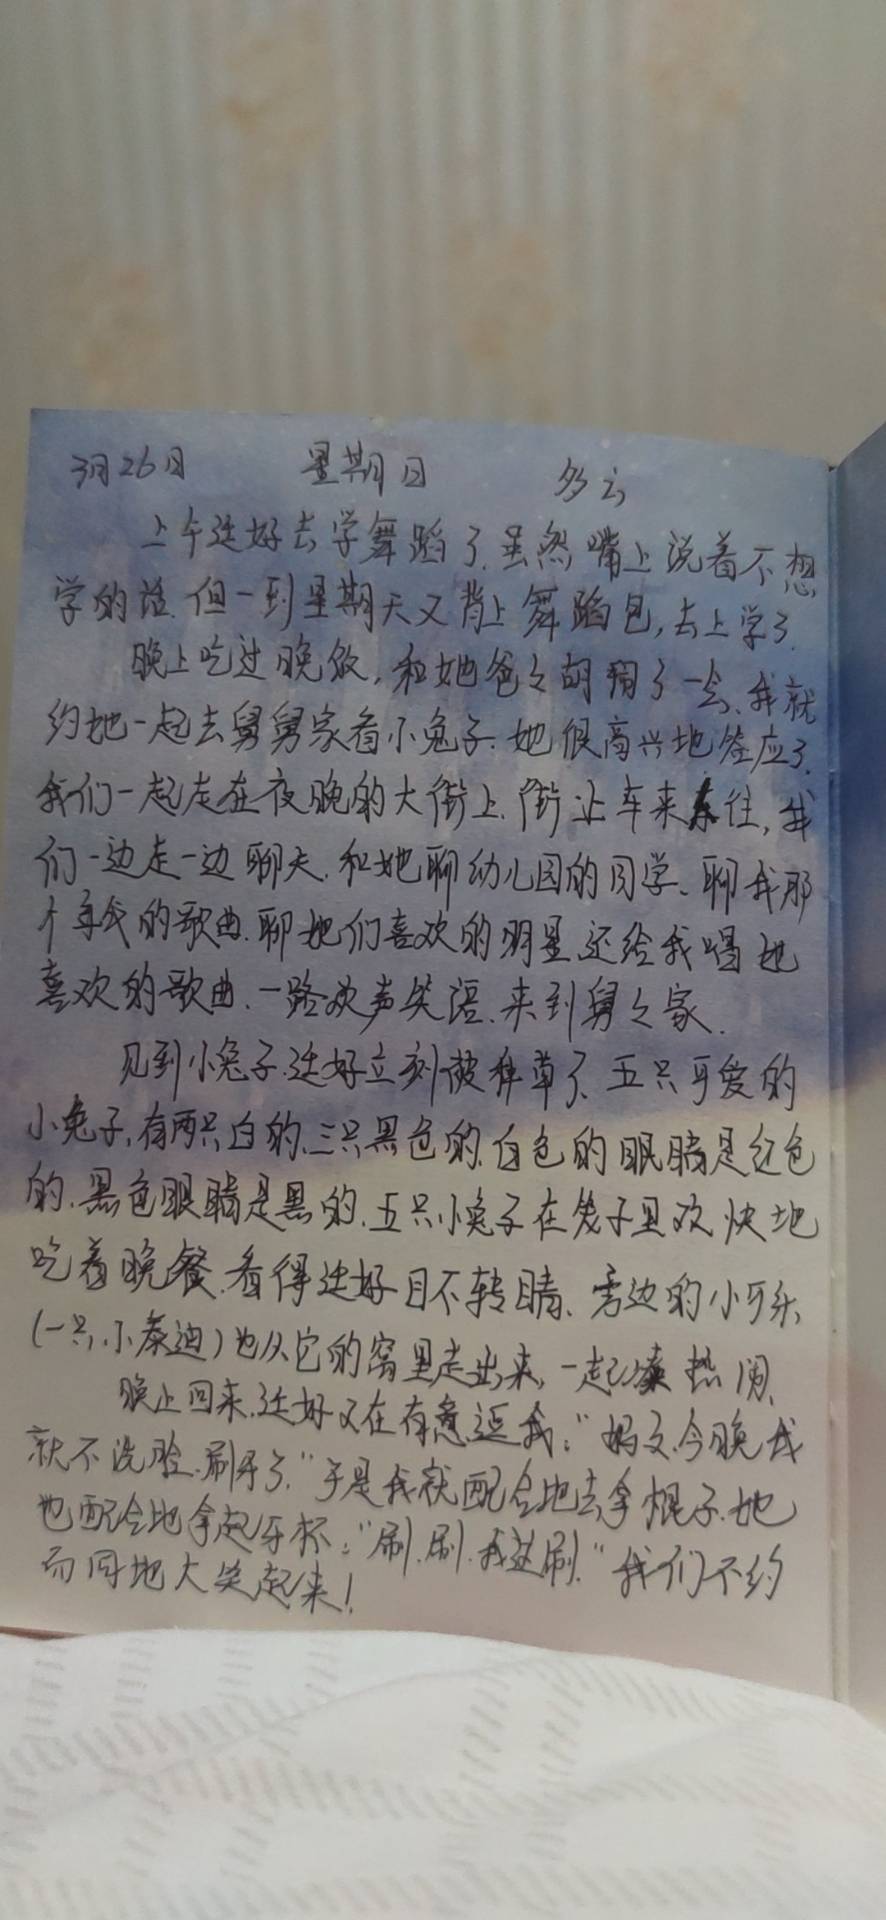 3月26日 星期日 多云
上午廷好去学舞蹈了.虽然嘴上说着不想
学的话.但一到星期天又背上舞蹈包,去上学了.
晚上吃过晚饭,和她爸々胡闹了一会、我就
约她一起去舅舅家看小兔子.她很高兴地答应了.
我们一起走在夜晚的大街上.街上车来车往,我
们一边走一边聊天.和她聊幼儿园的同学、聊我那
个年代的歌曲.聊她们喜欢的明星还给我唱她
喜欢的歌曲.一路欢声笑语.来到舅々家.
见到小兔子.廷好立刻被种草了、五只可爱的
小兔子,有两只白的、三只黑色的.白色的眼睛是红色
的.黑色眼睛是黑的.五只小兔子在笼子里欢快地
吃着晚餐.看得廷好目不转睛、旁边的小可乐
(一只小泰迪)也从它的窝里走出来,一起凑热闹、
晚上回来.廷好又在有意逗我:"妈々.今晚我
就不洗脸.刷牙了."于是我就配合地去拿棍子.她
也配合地拿起牙杯:"刷.刷.我这刷."我们不约
而同地大笑起来!